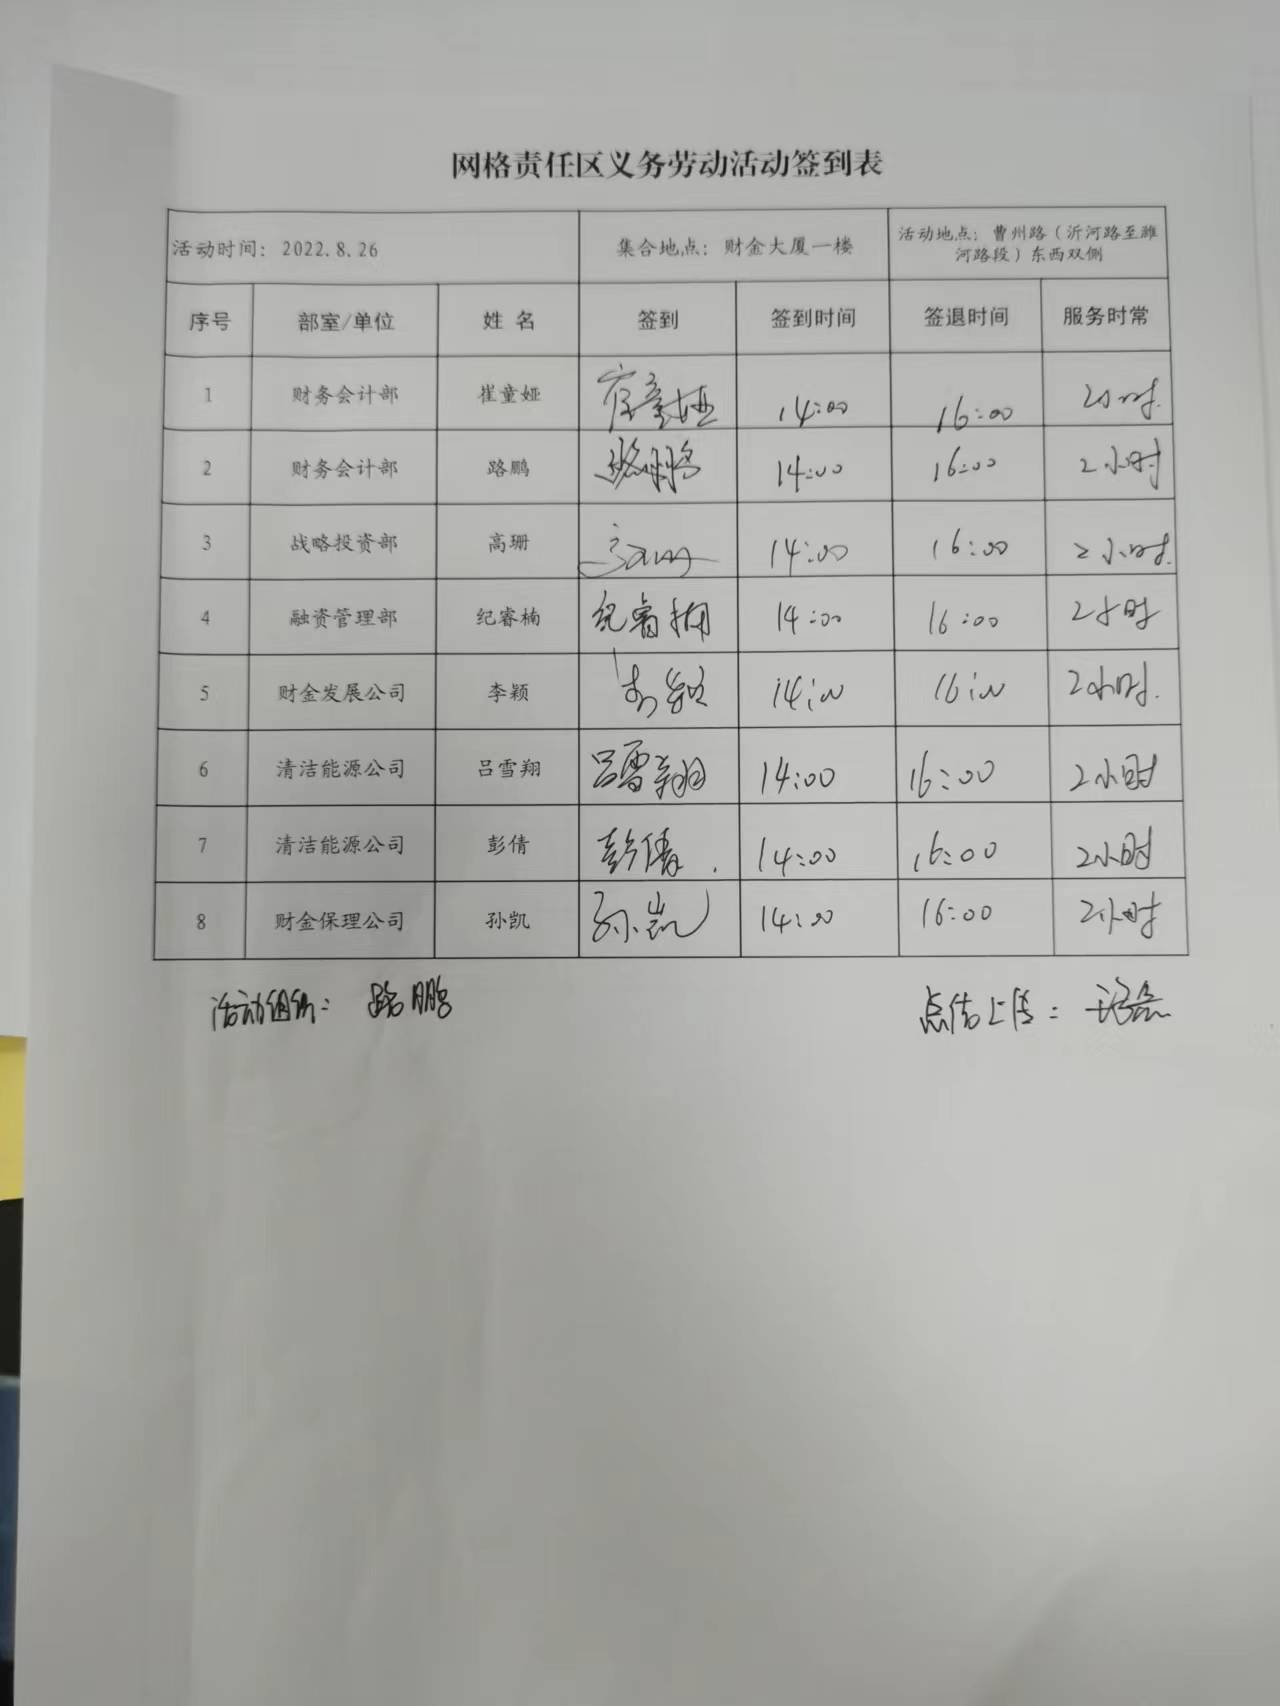 网格责任区义务劳动活动签到表
活动时间：2022.8.26 集合地点：财金大厦一楼 活动地点：曹州路（沂河路至潍
河路段）东西双侧
序号 部室/单位 姓 名 签到 签到时间 签退时间 服务时常
1 财务会计部 崔童娅 崔童娅 14:00 16:00 2小时.
2 财务会计部 路鹏 路鹏 14:00 16:00 2小时
3 战略投资部 高珊 高珊 14:00 16:00 2小时.
4 融资管理部 纪睿楠 纪睿楠 14:00 16:00 2小时
5 财金发展公司 李颖 李颖 14:00 16:00 2小时.
6 清洁能源公司 吕雪翔 吕雪翔 14:00 16:00 2小时
7 清洁能源公司 彭倩 彭倩. 14:00 16:00 2小时
8 财金保理公司 孙凯 孙凯 14:00 16:00 2小时
活动组织：路鹏 总结上传：